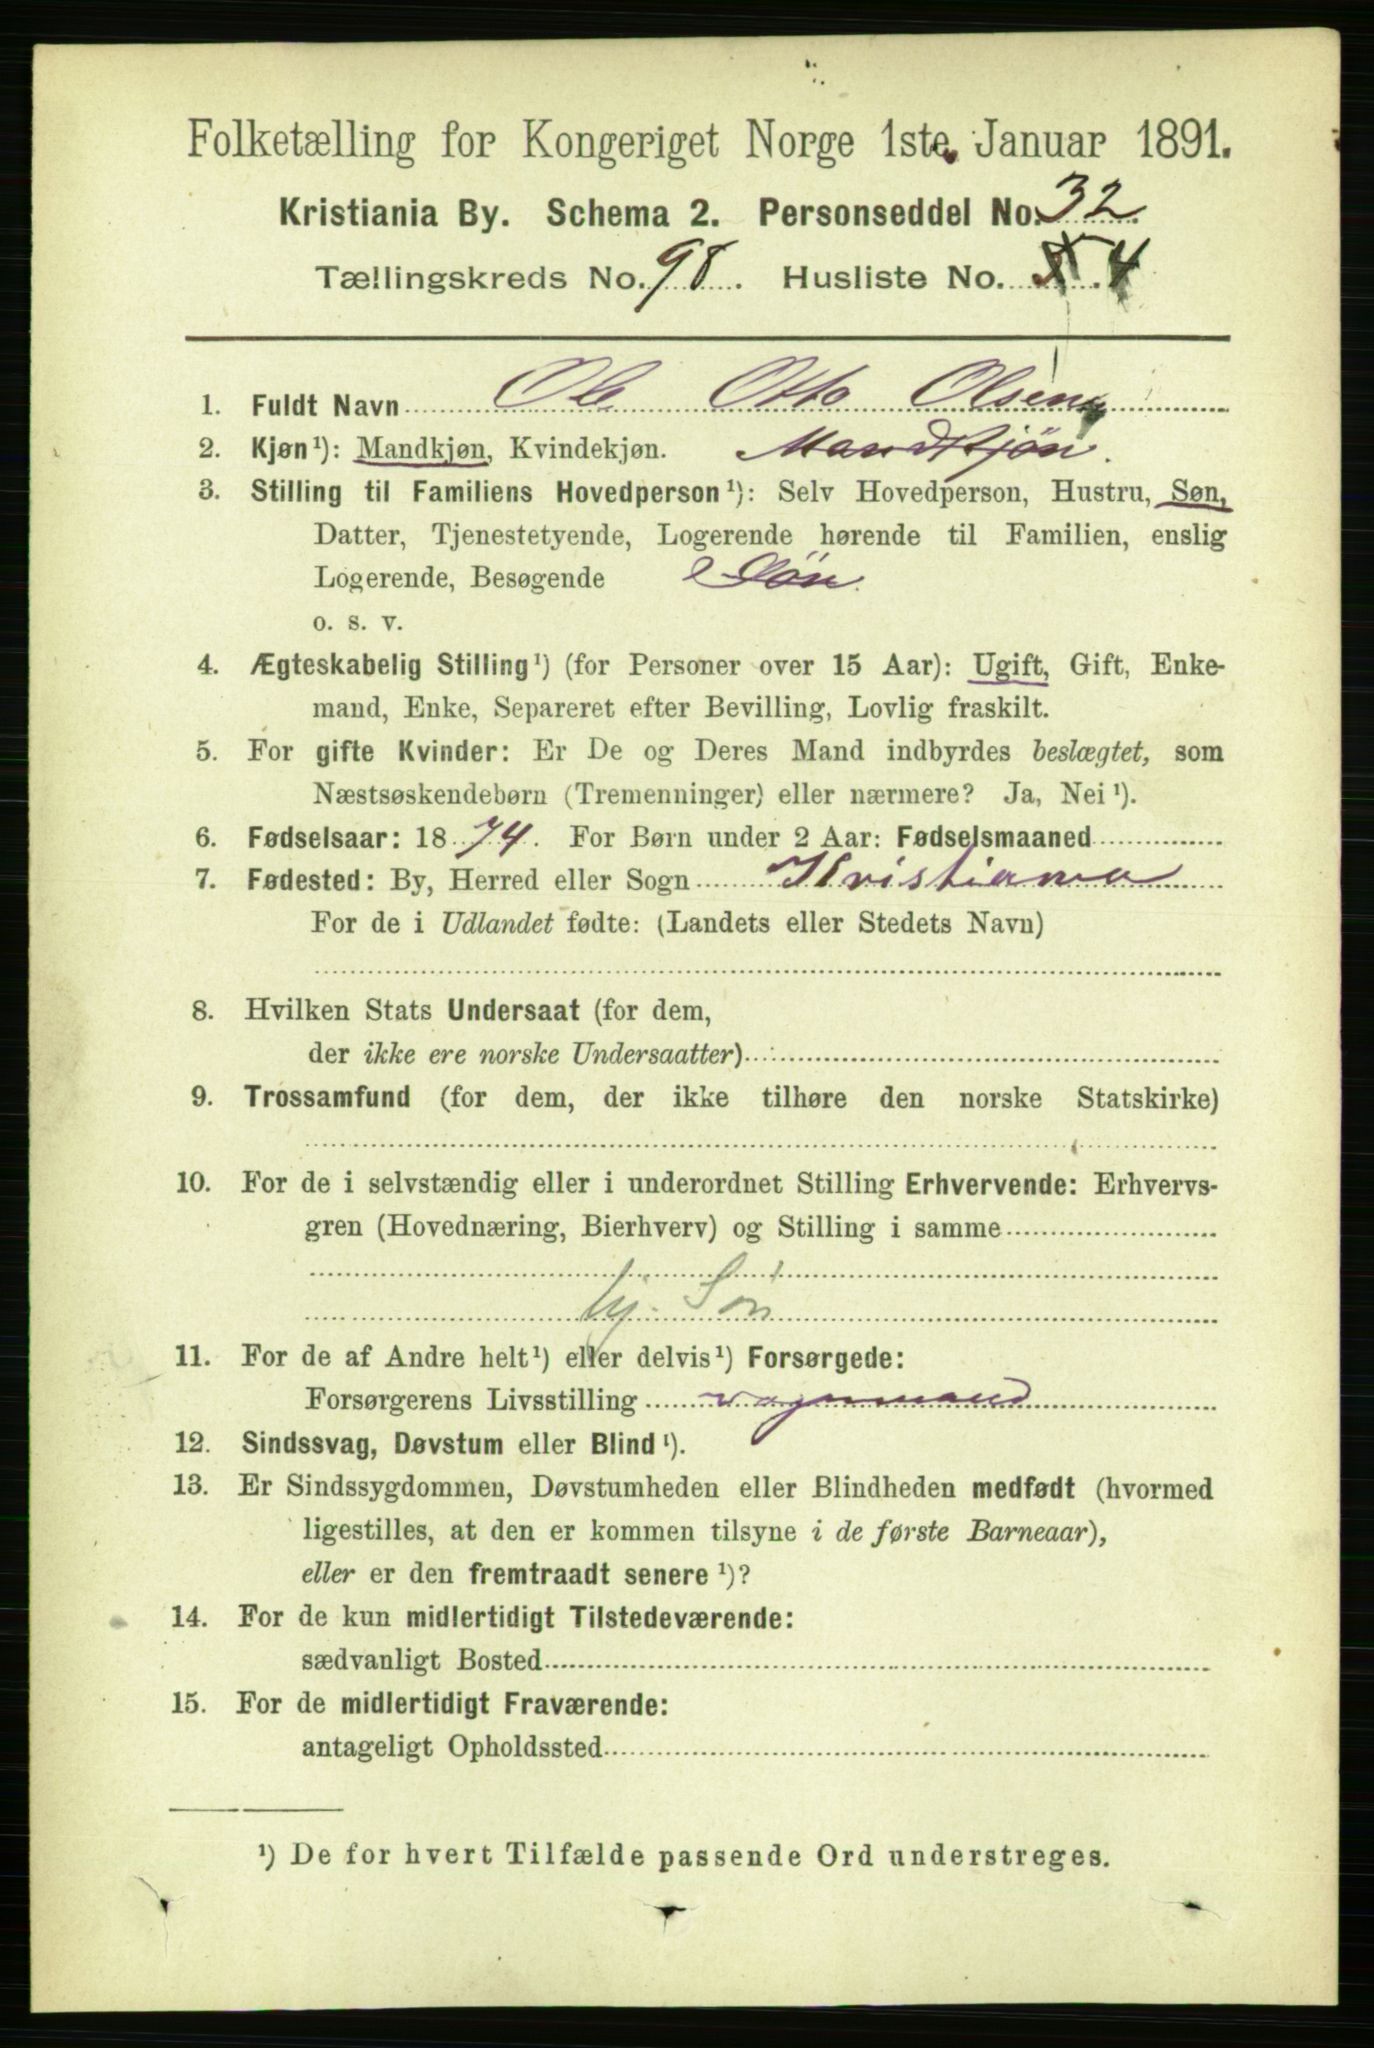 Folketælling for Kongeriget Norge 1ste Januar 1891.
Kristiania By. Schema 2. Personseddel No. 32.
Tællingskreds No. 98. Husliste No. 4
1. Fuldt Navn Ole Otto Olsen
2. Kjøn¹): Mandkjøn, Kvindekjøn. Mandkjön.
3. Stilling til Familiens Hovedperson¹): Selv Hovedperson, Hustru, Søn,
Datter, Tjenestetyende, Logerende hørende til Familien, enslig
Logerende, Besøgende Sön.
o. s. v.
4. Ægteskabelig Stilling¹) (for Personer over 15 Aar): Ugift, Gift, Enke-
mand, Enke, Separeret efter Bevilling, Lovlig fraskilt.
5. For gifte Kvinder: Er De og Deres Mand indbyrdes beslægtet, som
Næstsøskendebørn (Tremenninger) eller nærmere? Ja, Nei¹).
6. Fødselsaar: 1874. For Børn under 2 Aar: Fødselsmaaned
7. Fødested: By, Herred eller Sogn Kristiania
For de i Udlandet fødte: (Landets eller Stedets Navn)
8. Hvilken Stats Undersaat (for dem,
der ikke ere norske Undersaatter)
9. Trossamfund (for dem, der ikke tilhøre den norske Statskirke)
10. For de i selvstændig eller i underordnet Stilling Erhvervende: Erhvervs-
gren (Hovednæring, Bierhverv) og Stilling i samme
hj. Søn
11. For de af Andre helt¹) eller delvis¹) Forsørgede:
Forsørgerens Livsstilling vognmand
12. Sindssvag, Døvstum eller Blind¹).
13. Er Sindssygdommen, Døvstumheden eller Blindheden medfødt (hvormed
ligestilles, at den er kommen tilsyne i de første Barneaar),
eller er den fremtraadt senere¹)?
14. For de kun midlertidigt Tilstedeværende:
sædvanligt Bosted
15. For de midlertidigt Fraværende:
antageligt Opholdssted
¹) De for hvert Tilfælde passende Ord understreges.